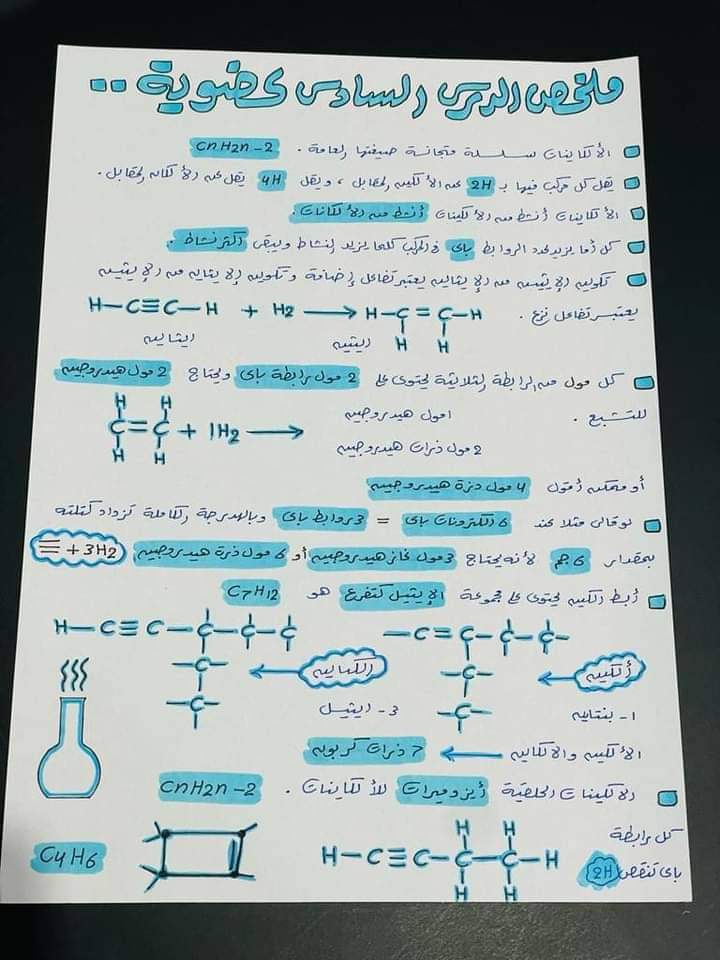 ملخص الدرس السادس عضوية ..
الألكاينات سلسلة متجانسة صيغتها العامة . CnH2n-2
يقل كل مركب فيها بـ 2H عن الألكين المقابل ، ويقل 4H يقل عن الألكان المقابل .
الألكاينات أنشط من الألكينات أنشط من الألكانات .
كل أما يزيد عدد الروابط باى فى المركب كلما يزيد النشاط ويبقى أكتر نشاط .
تكوين الإيثين من الإيثاين يعتبر تفاعل إضافة وتكوين الإيثاين من الإيثين
يعتبر تفاعل نزع .
H-C≡C-H + H2 → H-C=C-H
H H
ايثاين ايثين
كل مول من الرابطة الثلاثية يحتوى على 2 مول رابطة باى ويحتاج 2 مول هيدروجين
للتشبع .
H H
C=C + 1H2 →
H H
1مول هيدروجين
2 مول ذرات هيدروجين
أو ممكن أقول 4 مول ذرة هيدروجين
لو قالى مثلا عند 6 الكترونات باى = 3 روابط باى وبالهدرجة الكاملة تزداد كتلته
بمقدار 6 جم لأنه يحتاج 3 مول غاز هيدروجين أو 6 مول ذرة هيدروجين
≡ + 3H2
أبسط الكين يحتوى على مجموعة الإيثيل كتفرع هو C7H12
H-C≡C-C-C-C
C
C
-C=C-C-C-
C
C
ألكين
الكاين
1- بنتاين
3- ايثيل
الألكين والألكاين ← 7 ذرات كربون
الألكينات الحلقية أيزوميرات للألكاينات . CnH2n-2
كل رابطة
باى تنقص 2H
H H
H-C≡C-C-C-H
H H
C4H6